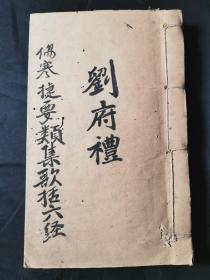 劉府禮
傷寒捷要類集歌括六經